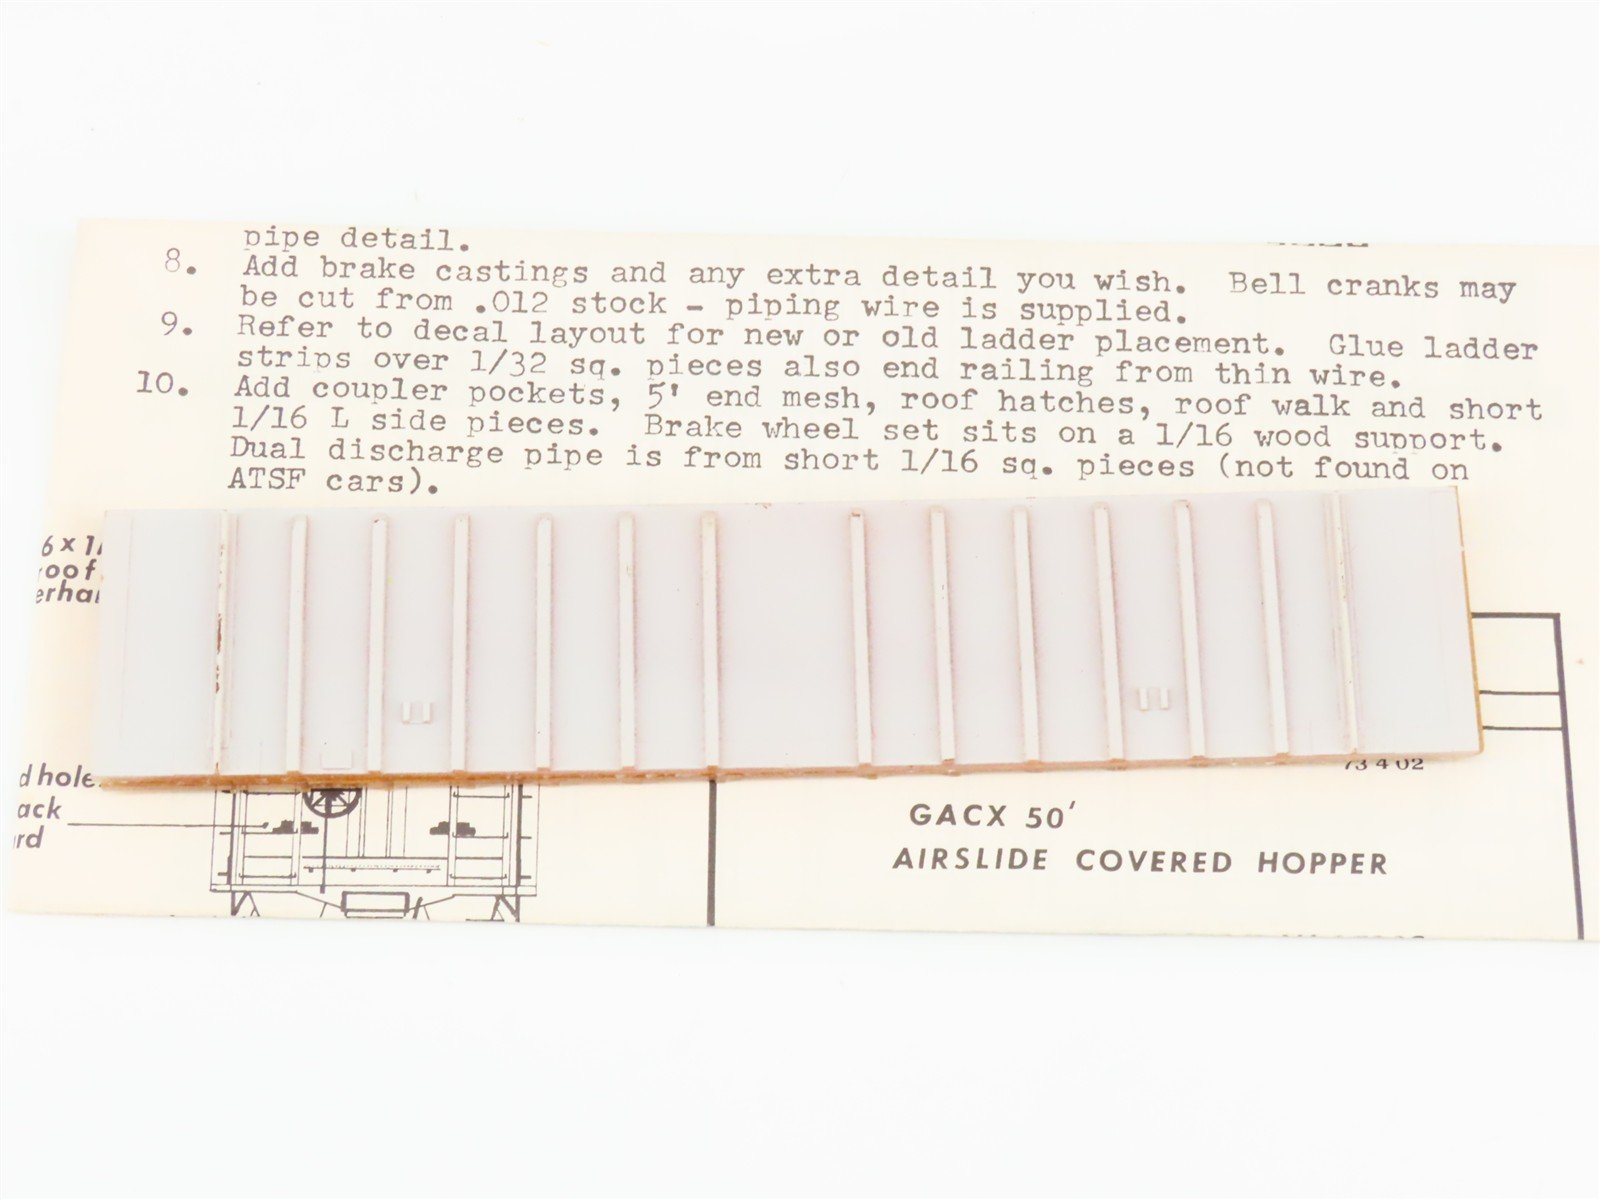 pipe detail.
8. Add brake castings and any extra detail you wish. Bell cranks may
be cut from .012 stock - piping wire is supplied.
9. Refer to decal layout for new or old ladder placement. Glue ladder
strips over 1/32 sq. pieces also end railing from thin wire.
10. Add coupler pockets, 5' end mesh, roof hatches, roof walk and short
1/16 L side pieces. Brake wheel set sits on a 1/16 wood support.
Dual discharge pipe is from short 1/16 sq. pieces (not found on
ATSF cars).
6 x 1/
oof
erha
d hole
ack
rd
73 4 02
GACX 50'
AIRSLIDE COVERED HOPPER